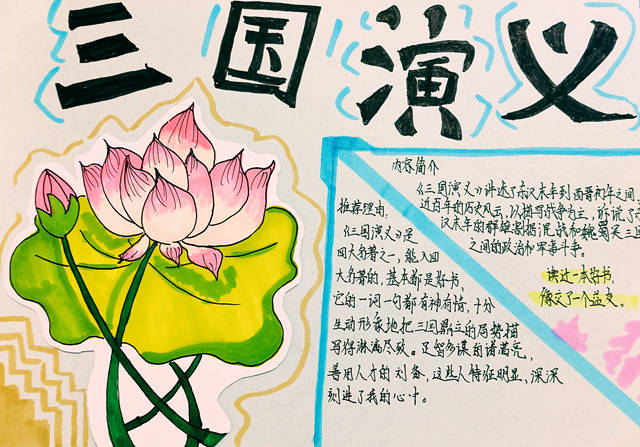 三国演义
内容简介
《三国演义》讲述了东汉末年到西晋初年之间,
近百年的历史风云,以描写战争为主,诉说了
汉末年的群雄割据混战和魏蜀吴三
之间的政治和军事斗争。
推荐理由:
《三国演义》是
四大名著之一,能入四
大名著的,基本都是好书,
它的一词一句都有神有情,十分
生动形象地把三国鼎立的局势描
写得淋漓尽致。足智多谋的诸葛亮,
善用人才的刘备,这些人特征明显,深深
刻进了我的心中。
读过一本好书,
像交了一个益友。